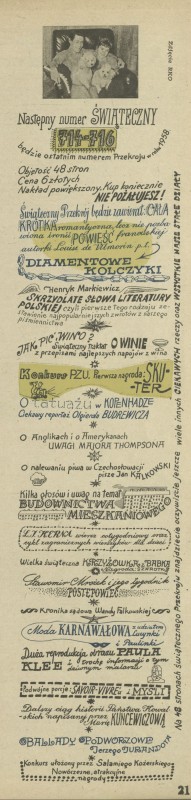 Zdjęcie RKO
Następny numer ŚWIĄTECZNY
714-716
będzie ostatnim numerem Przekroju w roku 1958
Objętość 48 stron
Cena 6 złotych
Nakład powiększony, Kup koniecznie
NIE POŻAŁUJESZ!
Świąteczny Przekrój będzie zawierał: CAŁĄ
KRÓTKĄ romantyczną, lecz nie pozba-
wioną ironii
POWIEŚĆ francuskiej
autorki Louise de Vilmorin p.t.
DIAMENTOWE
KOLCZYKI
Henryk Markiewicz
SKRZYDLATE SŁOWA LITERATURY
POLSKIEJ czyli pierwsze tego rodzaju ze-
stawienie najpopularniejszych zwrotów z naszego
piśmiennictwa
JAK PIĆ WINO?
świąteczny traktat O WINIE
z przepisami najlepszych napojów z wina
Konkurs PZU, Pierwsza nagroda: SKU-
TER
O tatuażu w KOPENHADZE
Ciekawy reportaż Olgierda BUDREWICZA
O Anglikach i o Amerykanach
UWAGI MAJORA THOMPSONA
O nalewaniu piwa w Czechosłowacji
pisze Jan KALKOWSKI
Kilka głosów i uwag na temat
BUDOWNICTWA
MIESZKANIOWEGO
Wielka świąteczna KRZYŻÓWKA z BABKĄ
Sławomir Mrożek i jego tygodnik
POSTĘPOWIEC
Kronika sądowa Wandy Falkowskiej
Moda KARNAWAŁOWA
Duża reprodukcja obrazu PAULA
KLEE i trochę informacji o tym
świetnym malarzu
Podwójna porcja SAVOIR-VIVRE i MYŚLI
Dalszy ciąg historii Państwa Kowal-
skich napisany przez
Marię KUNCEWICZOWĄ
BALLADY PODWÓRZOWE
Jerzego JURANDOTA
Konkurs ułożony przez Salamiego Kożerskiego
Noworoczne, atrakcyjne
nagrody
Na 48 stronach świątecznego Przekroju znajdziecie oczywiście jeszcze wiele innych CIEKAWYCH rzeczy oraz WSZYSTKIE NASZE STAŁE DZIAŁY
21